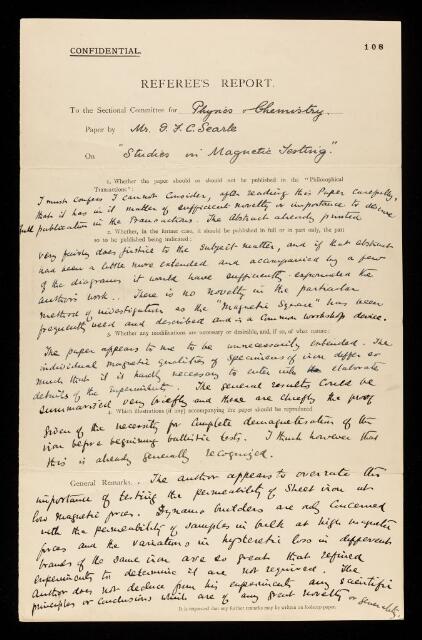 CONFIDENTIAL.
108
REFEREE'S REPORT.
To the Sectional Committee for Physics & Chemistry.
Paper by Mr. G. F. C. Searle
On "Studies in Magnetic Testing".
1. Whether the paper should or should not be published in the "Philosophical
Transactions":
I must confess I cannot consider, after reading this Paper carefully,
that it has in it matter of sufficient novelty or importance to deserve
full publication in the Transactions. The Abstract already printed
2. Whether, in the former case, it should be published in full or in part only, the part
so to be published being indicated:
very fairly does justice to the subject matter, and if that abstract
had been a little more extended and accompanied by a few
of the diagrams it would have sufficiently expounded the
author's work. There is no novelty in the particular
method of investigation as the "Magnetic Square" has been
frequently used and described and is a common workshop device.
3. Whether any modifications are necessary or desirable, and, if so, of what nature:
The paper appears to me to be unnecessarily extended. The
individual magnetic qualities of specimens of iron differ so
much that it is hardly necessary to enter into the elaborate
details of the experiments. The general results could be
summarised very briefly and these are chiefly the proof
4. Which illustrations (if any) accompanying the paper should be reproduced
given of the necessity for complete demagnetisation of the
iron before beginning ballistic tests. I think however that
this is already generally recognised.
General Remarks. The author appears to overrate the
importance of testing the permeability of sheet iron at
low magnetic forces. Dynamo builders are only concerned
with the permeability of samples in bulk at high magnetic
forces and the variations in hysteretic loss in different
brands of the same iron are so great that refined
experiments to determine it are not required. The
author does not deduce from his experiments any scientific
principles or conclusions which are of any great novelty or generality.
It is requested that any further remarks may be written on foolscap paper.